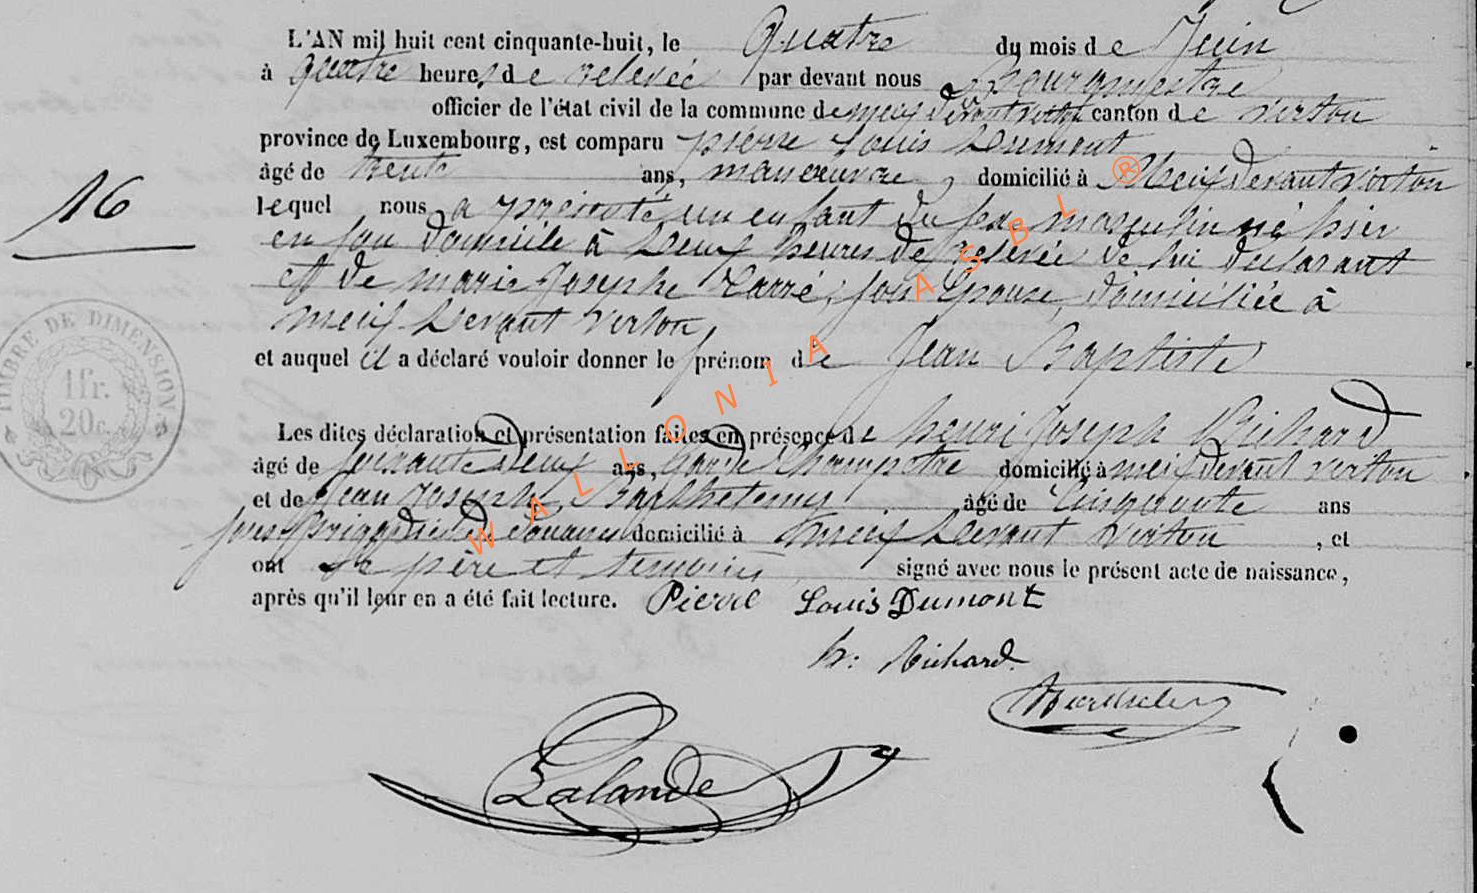 L'AN mil huit cent cinquante-huit, le Quatre du mois de Juin
à quatre heures de relevée par devant nous Bourgmestre
officier de l'état civil de la commune de meix devant virton canton de virton
province de Luxembourg, est comparu pierre Louis Dumont
âgé de trente ans, manœuvre, domicilié à Meix devant virton
16
lequel nous a présenté un enfant du masculin né hier
en son domicile à deux heures de relevée de lui declarant
et de marie Josephe son Epouse, domiciliée à
meix devant virton,
et auquel il a déclaré vouloir donner le prénom de Jean Baptiste
TIMBRE DE DIMENSION
1fr.
20c.
Les dites déclaration et présentation faites en présence de henri Joseph Richard
âgé de soixante deux ans, Garde Champetre domicilié à meix devant virton
et de Jean Joseph Barthelemy âgé de Cinquante ans
sous Brigadier de douanes domicilié à meix devant virton, et
ont le père et temoins signé avec nous le présent acte de naissance,
après qu'il leur en a été fait lecture. Pierre Louis Dumont
h: Richard
Barthelemy
Lalande
WALLONIA ASBL ®